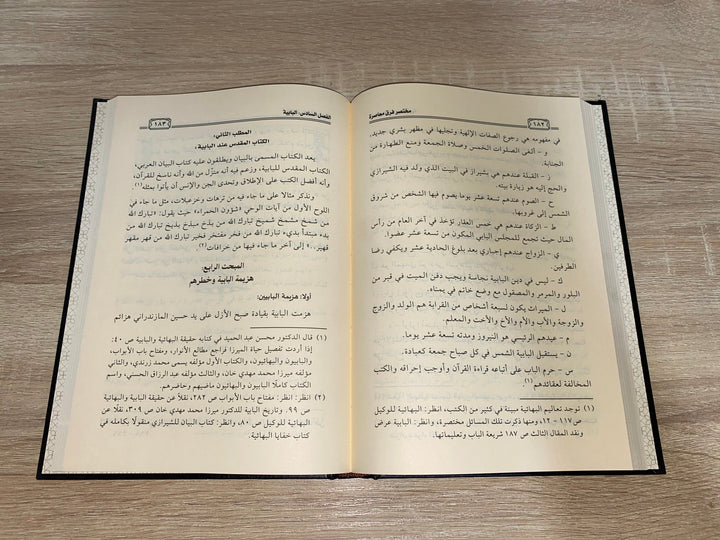 مختصر فرق معاصرة
١٨٢
في مفهومه هي رجوع الصفات الإلهية وتجليها في مظهر بشري جديد.
و – ألغى الصلوات الخمس وصلاة الجمعة ومنع الطهارة من
الجنابة.
ز – القبلة عندهم هي شيراز في البيت الذي ولد فيه الشيرازي
والحج إليه هو زيارة بيته.
ح – الصوم عندهم تسعة عشر يوما يصوم فيها الشخص من شروق
الشمس إلى غروبها.
ط – الزكاة عندهم هي خمس العقار تؤخذ في آخر العام من رأس
المال حيث تجمع للمجلس البابي المكون من تسعة عشر عضوا.
ي – الزواج عندهم إجباري بعد بلوغ الحادية عشر ويكفي رضا
الطرفين.
ك – ليس في دين البابية نجاسة ويجب دفن الميت في قبر من
البلور والمرمر والمصقول مع وضع خاتم في يمناه.
ل – الميراث يكون لسبعة أشخاص من القرابة هم الولد والزوج
والزوجة والأب والأم والأخ والأخت والمعلم.
م – عيدهم الرئيسي هو النيروز ومدته تسعة عشر يوما.
ن – يستقبل البابية الشمس في كل صباح جمعة كعبادة.
س – حرم الباب على أتباعه قراءة القرآن وأوجب إحراقه والكتب
المخالفة لعقائدهم(١).
(١) توجد تعاليم البهائية مبينة في كثير من الكتب، انظر: البهائية للوكيل
ص ١١٧ – ١٢، ومنها ذكرت تلك المسائل مختصرة، و انظر: البابية عرض
ونقد المقال الثالث ص ١٨٧ شريعة الباب وتعليماتها.
الفصل السادس: البابية
١٨٣
المطلب الثاني:
الكتاب المقدس عند البابية:
يعد الكتاب المسمى بالبيان ويطلقون عليه كتاب البيان العربي،
الكتاب المقدس للبابية، يزعم فيه أنه منزّل من الله وأنه ناسخ للقرآن،
وأنه أفضل الكتب على الإطلاق وتحدى الجن والإنس أن يأتوا بمثله(١).
ونذكر مثالا على ما جاء فيه من ترهات وخزعبلات، مثل ما جاء في
اللوح الأول من آيات الوحي «شؤون الحمراء» حيث يقول: «تبارك الله
من شمخ مشمخ شميخ تبارك الله من بذخ مبذخ بذيخ تبارك الله من
بدء مبتدأ بديء تبارك الله من فخر مفتخر فخير تبارك الله من قهر مقهر
قهير..» إلى آخر ما جاء فيها من خرافات(٢).
المبحث الرابع:
هزيمة البابية وخطرهم
أولا: هزيمة البابيين:
هزمت البابية بقيادة صبح الأزل على يد حسين المازندراني هزائم
(١) قال الدكتور محسن عبد الحميد في كتابه حقيقة البهائية والبابية ص ٤٠:
إذا أردت تفصيل حياة الميرزا فراجع مطالع الأنوار، ومفتاح باب الأبواب،
والبابيون والبهائيون، والكتاب الأول مؤلفه يسمى محمد زرندي، والثاني
مؤلفه ميرزا محمد مهدي خان، والثالث مؤلفه عبد الرزاق الحسني، واسم
الكتاب كاملًا البابيون والبهائيون ماضيهم وحاضرهم.
(٢) انظر: مفتاح باب الأبواب ص ٢٨٢، نقلًا عن حقيقة البابية والبهائية
ص ٩٩. وتاريخ البابية للدكتور ميرزا محمد مهدي خان ص ٣٠٩، نقلًا عن
البهائية للوكيل ص ٨٠، وانظر: كتاب البيان للشيرازي منقولًا بكامله في
كتاب خفايا البهائية.